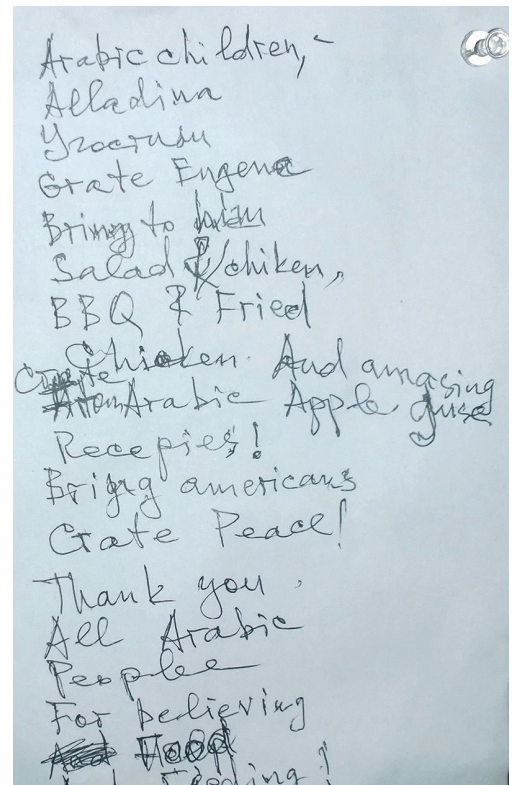 Arabic children,-
Alladina
Grate Eugene
Bring to
Salad & chiken,
BBQ & Fried
Chicken. And amazing
Arabic Apple Juse
Recepies!
Briging americans
Grate Peace!
Thank you.
All Arabic
People
For believing
Food